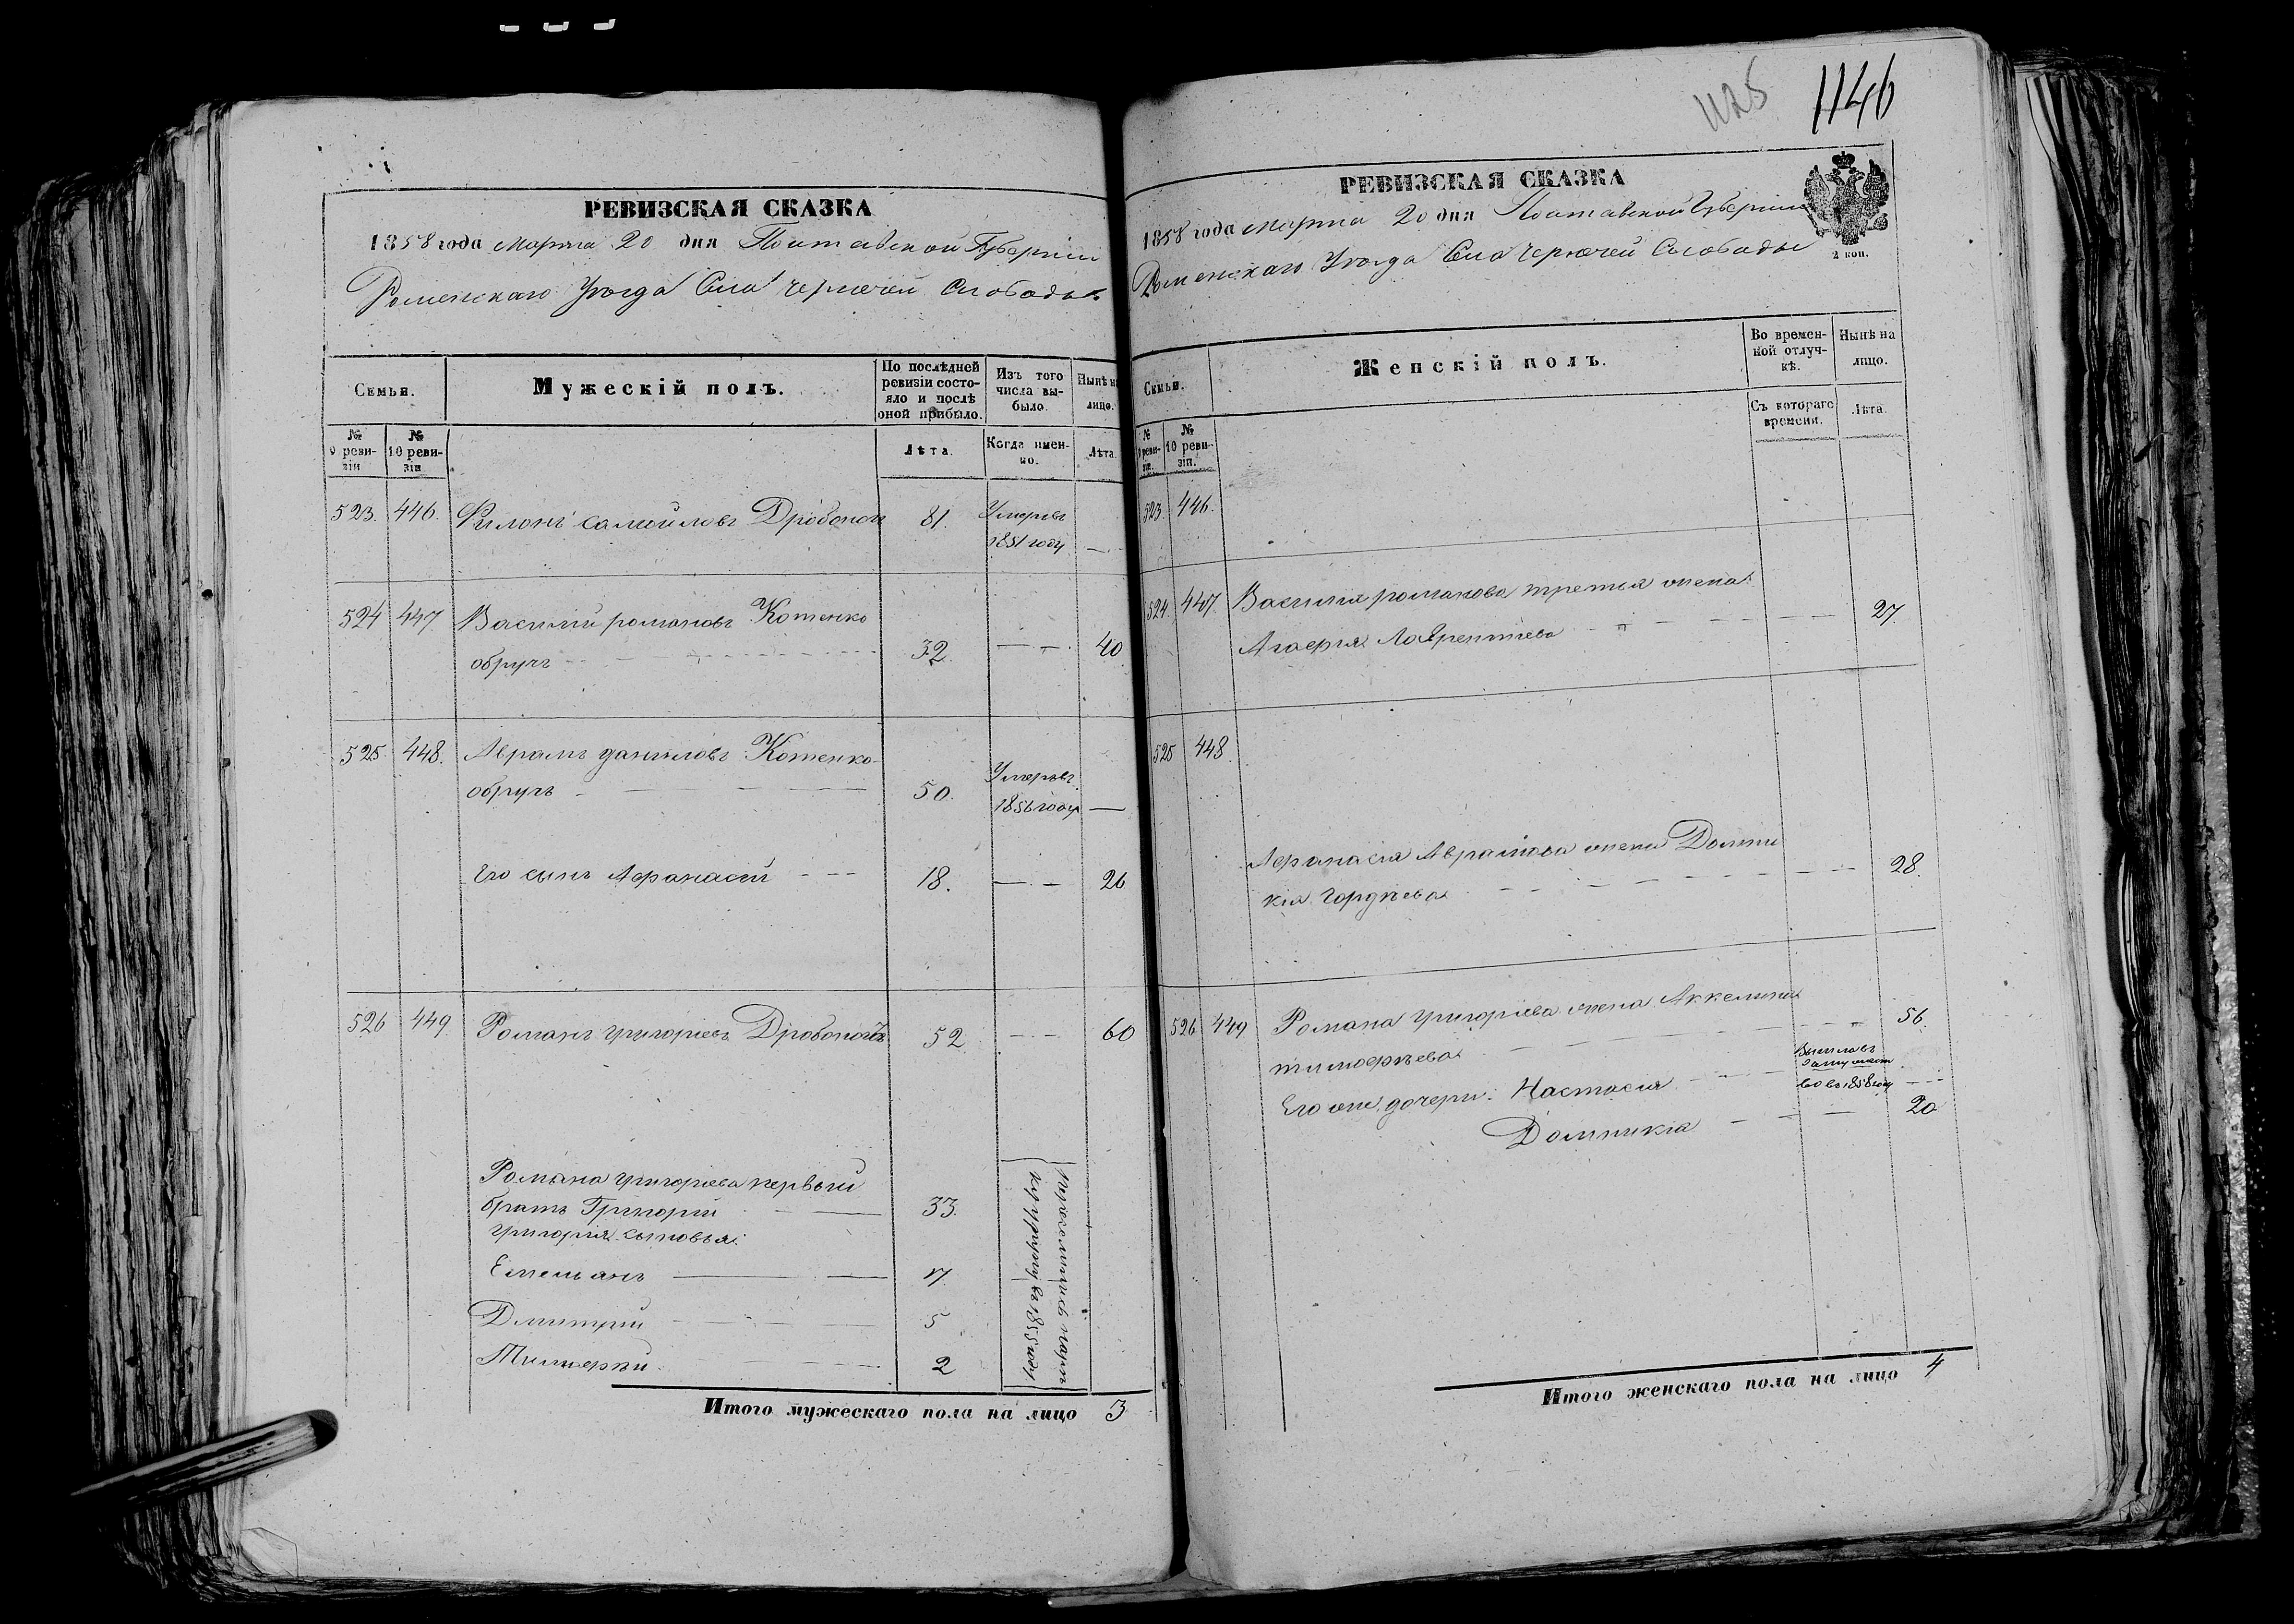 РЕВИЗСКАЯ СКАЗКА
1858 года Марта 20 дня Полтавской Губерніи
Роменскаго Уѣзда Села Чернечей Слободы
Семьи.
Мужескій полъ.
По послѣдней ревизіи состояло и послѣ оной прибыло.
Изъ того числа выбыло.
Нынѣ на лицо.
№ 9 ревизіи
№ 10 ревизіи
Лѣта.
Когда именно.
Лѣта.
523. 446. Филонъ Самойловъ Дробоногъ 81. Умеръ въ
1851 году —
524 447. Василій романовъ Котенко
обручъ 32. — 40
525. 448. Аврамъ даниловъ Котенко-
обручъ 50. Умеръ въ
1856 году —
Его сынъ Афанасій 18. — 26
526 449. Романъ григоріевъ Дробоногъ 52 — 60
Романа григоріева первый
братъ Григорій 33.
григорія сыновья:
Емельянъ 17.
Дмитрій 5
Тимофѣй 2
въ 1855 году
Итого мужескаго пола на лицо 3
1125 1146
РЕВИЗСКАЯ СКАЗКА
1858 года марта 20 дня Полтавской Губерніи
Роменскаго Уѣзда Села Чернечей Слободы
2 коп.
Семьи.
Женскій полъ.
Во временной отлучкѣ.
Нынѣ на лицо.
№ 9 ревизіи.
№ 10 ревизіи.
Съ котораго времени.
Лѣта.
523. 446.
524. 447. Василія романова третья жена
Агафія Лаврентіева — 27.
525 448
Афанасія Аврамова жена Домни
кія Гордѣева — 28.
526 449 Романа григоріева жена Аккелина
тимофѣева — 56.
Его же дочери: Настасія Вышла въ замужест
во въ 1858 году —
Домникія — 20
Итого женскаго пола на лицо 4